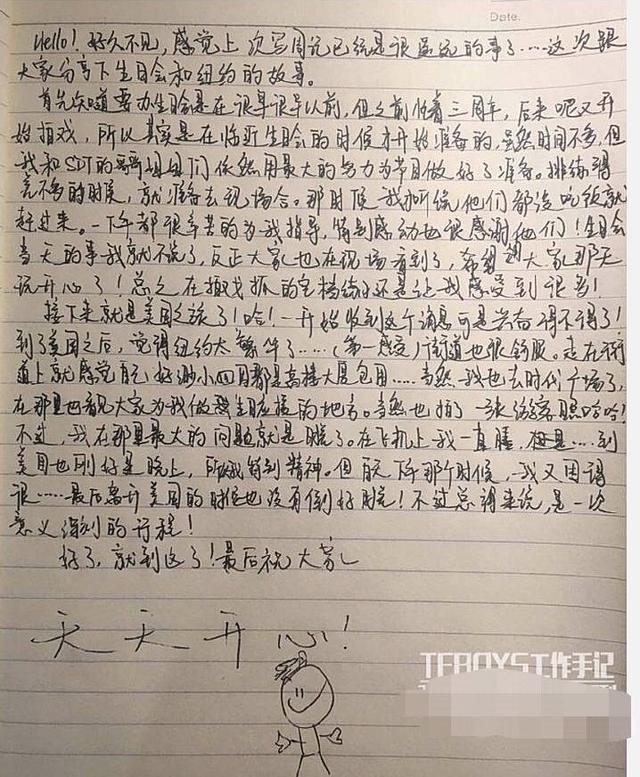 Date.
Hello! 好久不见,感觉上次写周记已经是很遥远的事了……这次跟
大家分享下生日会和纽约的故事。
首先知道要办生日会是在很早很早以前,但之前忙着三周年,后来呢又开
始拍戏,所以其实是在临近生日会的时候才开始准备的,虽然时间不多,但
我和SDT的哥哥姐姐们依然用最大的努力为节目做好了准备。排练得
差不多的时候,就准备去现场合。那时候我听说他们都没吃饭就
赶过来。一下午都很辛苦的为我指导,特别感动也很感谢他们!生日会
当天的事我就不说了,反正大家也在现场看到了,希望大家那天
玩开心了!总之在拍戏抓的空档练习还是让我感受到很多!
接下来就是美国之旅了!哈!一开始收到这个消息可是兴奋得不得了!
到了美国之后,觉得纽约太繁华了……(第一感受)街道也很舒服。走在街
道上就感觉自己好渺小四周都是高楼大厦包围……当然我也去时代广场了,
在那里也看见大家为我做生日应援的地方。当然也拍了一张游客照哈哈!
不过,我在那里最大的问题就是睡了。在飞机上我一直睡,但是……到
美国也刚好是晚上,所以我特别精神。但每天下午那个时候,我又困得
很……最后离开美国的时候也没有倒好时差!不过总得来说,是一次
意义深刻的行程!
好了,就到这了!最后祝大家
天天开心!
TFBOYS工作手记